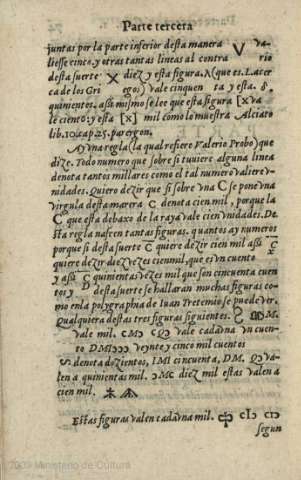 Parte tercera
juntas por la parte inferior desta manera V va-
liesse cinco. y otras tantas lineas al contra rio
desta suerte X diez y esta figura. λ (que es. L. acer
ca de los Gri egos) vale cinquen ta y esta. δ.
quinientos. assi mismo se lee que esta figura [x va
le ciento: y esta [x] mil como lo muestra Alciato
lib. 10. cap 25. parergon.
Ay vna regla (la qual refiere Valerio Probo) que
dize. Todo numero que sobre si tuuiere alguna linea
denota tantos millares como el tal numero valiere v-
nidades. Quiero dezir que si sobre vna C se pone vna
virgula desta marera C̄ denota cien mil, porque la
C que esta debaxo de la raya vale cien vnidades. De
sta regla nascen tantas figuras. quantos ay numeros
porque si desta suerte C̄ quiere dezir cien mil assi X̄
quiere dezir diez vezes cien mil, que es vn cuento
y assi C̄ quinientas vezes mil que son cincuenta cuen
tos y D desta suerte se hallaran muchas figuras co-
mo en la polygraphia de Iuan Tretemio se puede ver.
Qualquiera destas tres figuras siguientes. M.
vale mil. cMɔ cɔ vale cada vna vn cuen-
to DMIɔɔɔ veynte y cinco mil cuentos
denota dozientos, IMI cincuenta, DM. va-
len a quinientas mil. ɔMc diez mil estas valen a
cien mil.
Estas figuras valen cada vna mil. cIɔ
segun
2009 Ministerio de Cultura